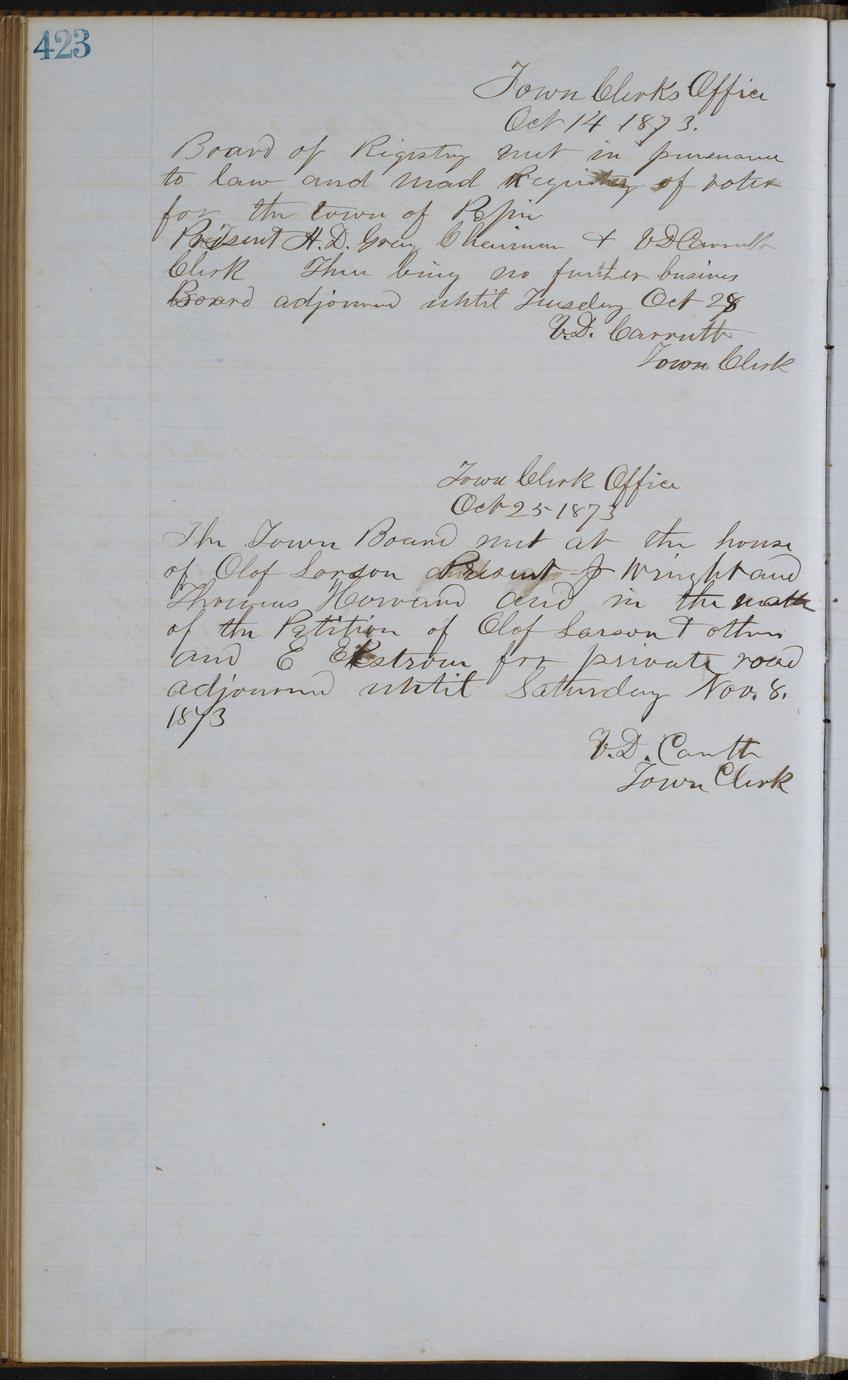 423
Town Clerks Office
Oct 14 1873.
Board of Registry met in pursuance
to law and mad Registry of voters
for the town of Pepin
Present H.D. Grey Chairman & V D Carruth
Clerk Ther being no further busines
Board adjourned until Tuesday Oct 28
V.D. Carruth
Town Clerk
Town Clerk Office
Oct 25 1873
The Town Board met at the house
of Olof Larson Present J Wright and
Thomas Howard and in the matter
of the Petition of Olof Larson & others
and E Ekstrom for private road
adjourned until Saturday Nov. 8.
1873
V.D. Carruth
Town Clerk